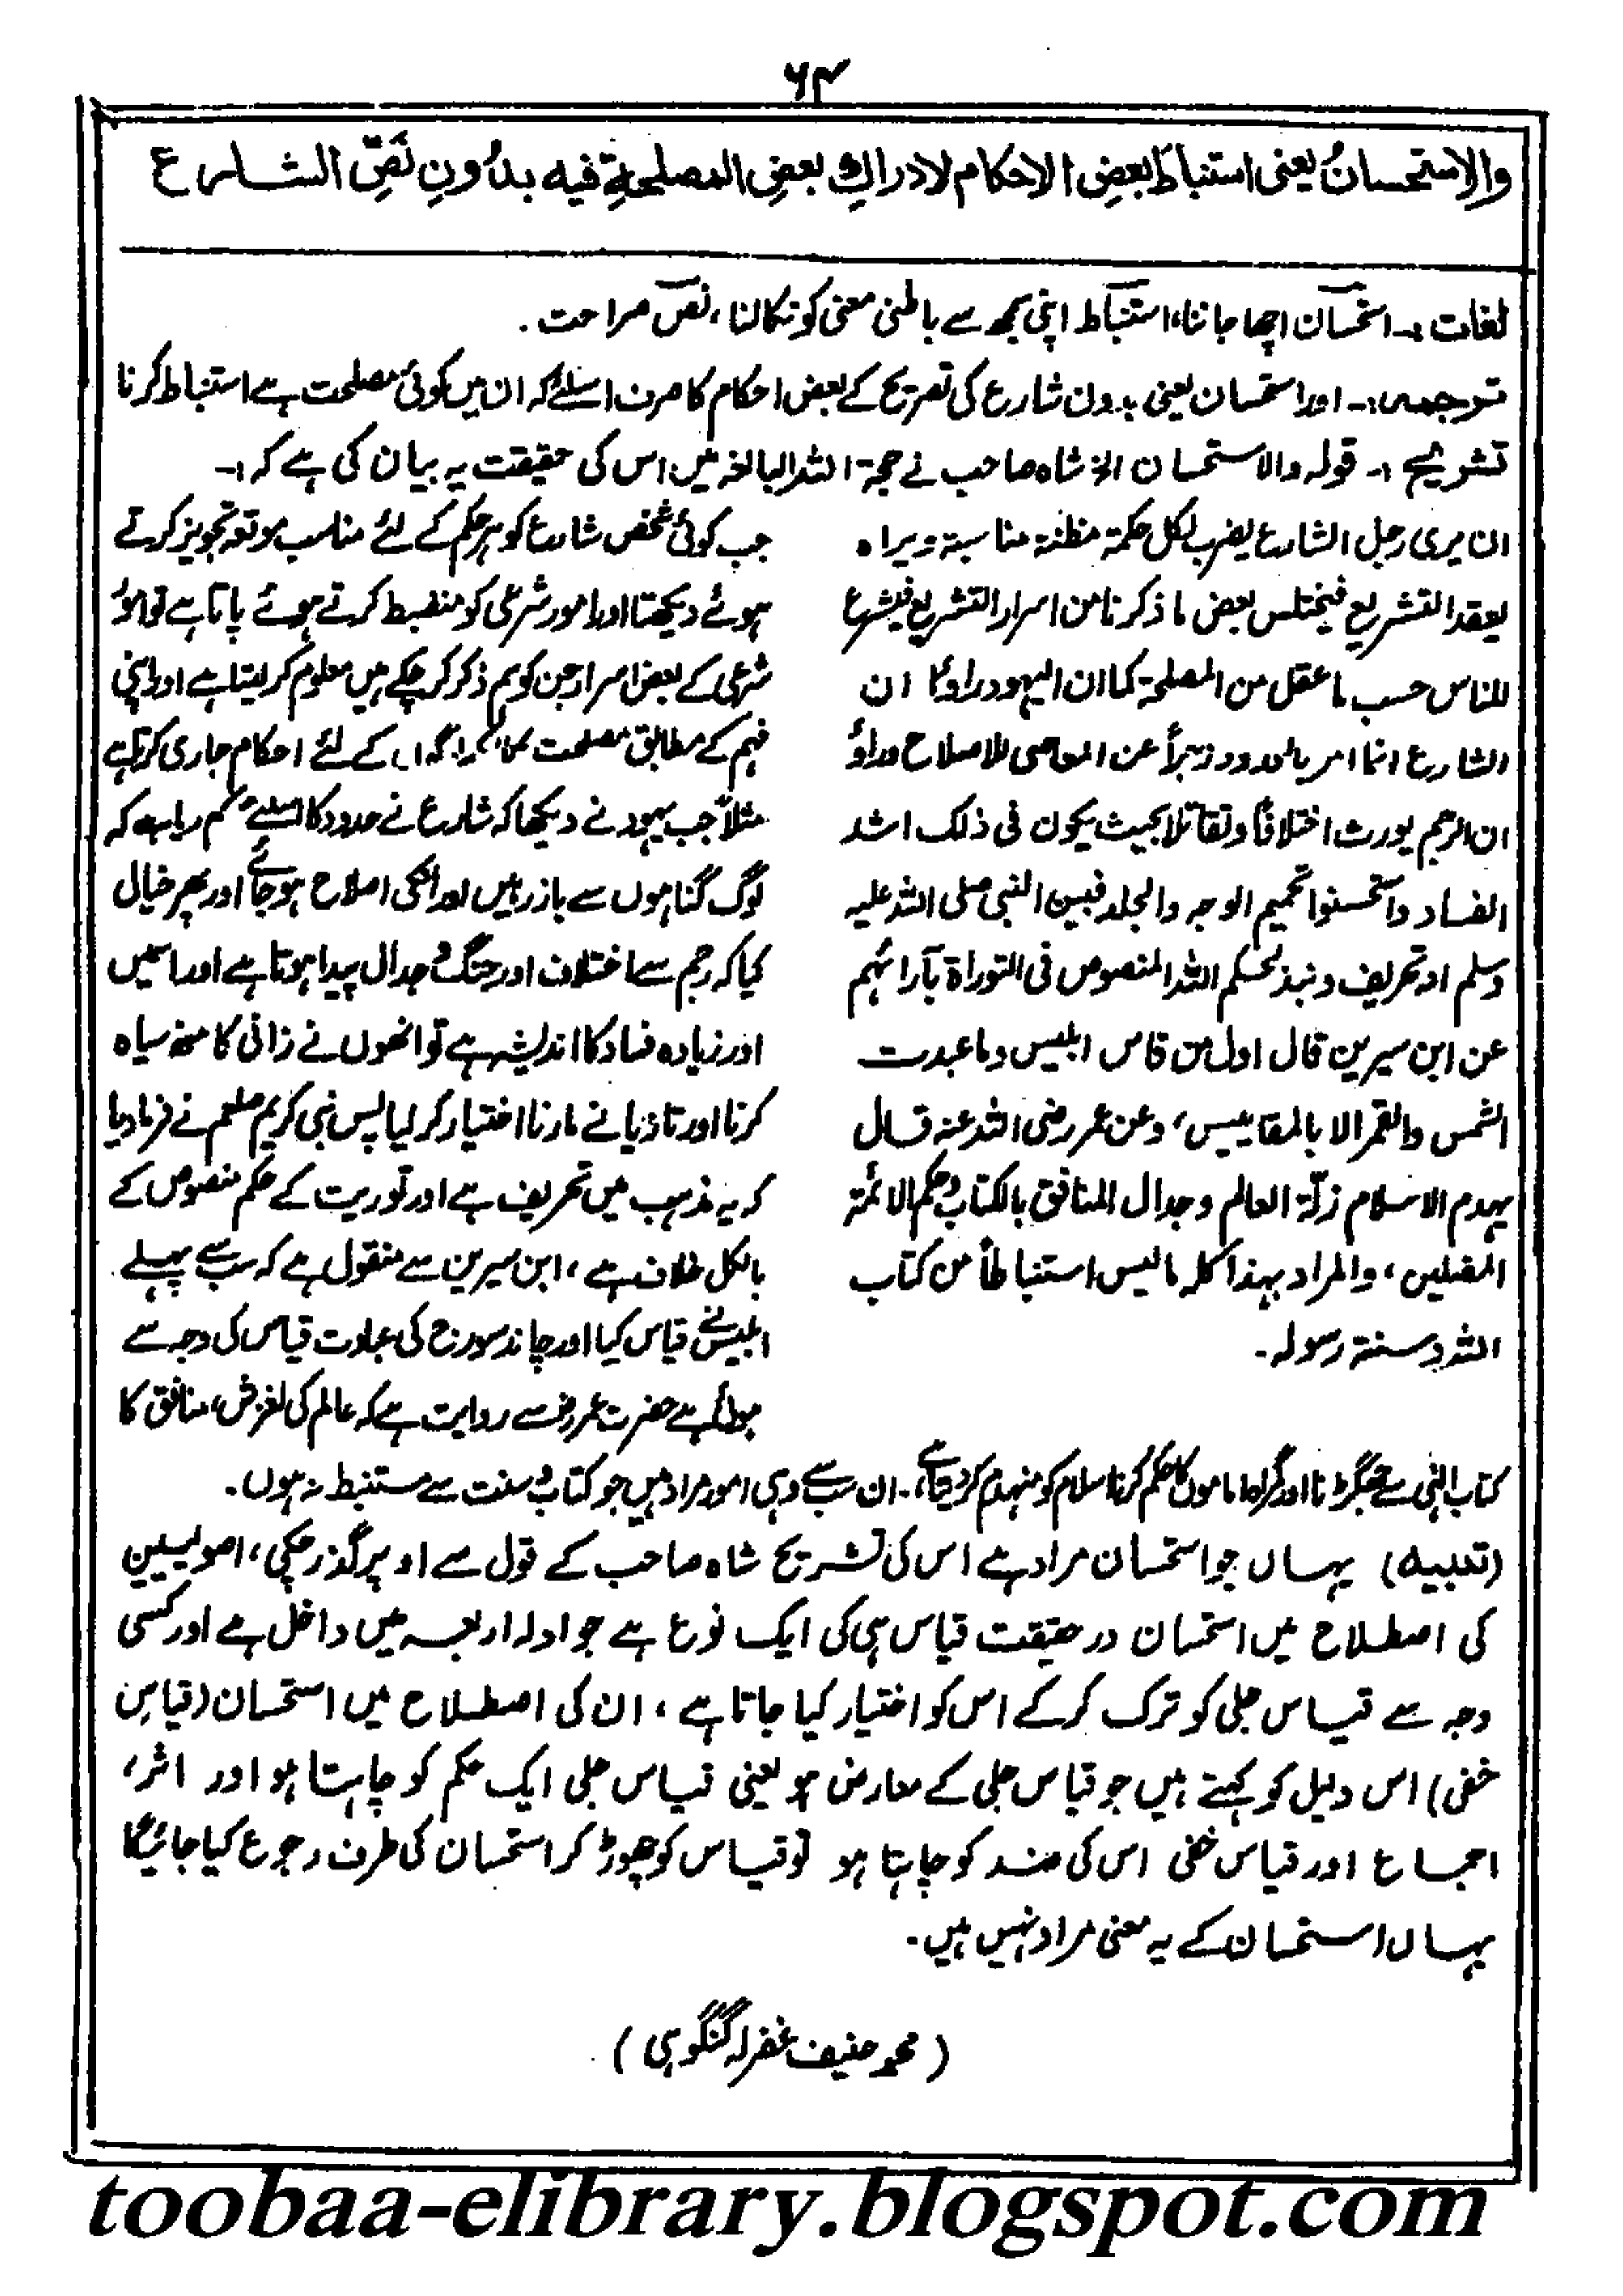 ۶۴
والاستحسانُ یعنی استنباطَ بعضِ الاحکام لادراكِ بعضِ المصلحةِ فیه بدُونِ نَصِّ الشارع
لغات :۔ استحسان اچھا جاننا، استنباط اپنی سمجھ سے باطنی معنی کو نکالنا، نص صراحت ۔
ترجمہ :۔ اور استحسان یعنی بدون شارع کی تصریح کے بعض احکام کا صرف اسلئے کہ ان میں کوئی مصلحت ہے استنباط کرنا
تشریح :۔ قولہ والاستحسان الخ شاہ صاحب نے حجۃ اللہ البالغہ میں اس کی حقیقت یہ بیان کی ہے کہ :۔
ان یری رجل الشارع یضرب لکل حکمۃ مظنۃ مناسبۃ ویراہ
یعقد التشریع فیختلس بعض ما ذکرنا من اسرار التشریع فیشرع
للناس حسب ما عقل من المصلحۃ کما ان الیہود راوا ان
الشارع انما امر بالحدود زجراً عن المعاصی للاصلاح وراؤ
ان الرجم یورث اختلافاً وتقاتلا بحیث یکون فی ذلک اشد
الفساد واستحسنوا تحمیم الوجہ والجلد فبین النبی صلی اللہ علیہ
وسلم انہ تحریف ونبذ لحکم اللہ المنصوص فی التوراۃ بآرائہم
عن ابن سیرین قال اول من قاس ابلیس وما عبدت
الشمس والقمر الا بالمقاییس، وعن عمر رضی اللہ عنہ قال
یہدم الاسلام زلّۃ العالم وجدال المنافق بالکتاب وحکم الائمۃ
المضلین، والمراد بہذا کلہ ما لیس استنباطاً من کتاب
اللہ وسنۃ رسولہ ۔
جب کوئی شخص شارع کو ہر حکم کے لئے مناسب موقعہ تجویز کرتے
ہوئے دیکھتا اور امور شرعی کو منضبط کرتے ہوئے پاتا ہے تو امور
شرعی کے بعض اسرار جن کو ہم ذکر کر چکے ہیں معلوم کر لیتا ہے اور اپنی
فہم کے مطابق مصلحت کے لئے احکام جاری کرتا ہے
مثلاً جب یہود نے دیکھا کہ شارع نے حدود کا اسلئے حکم دیا ہے کہ
لوگ گناہوں سے باز رہیں اور انکی اصلاح ہو جائے اور پھر خیال
کیا کہ رجم سے اختلاف اور جنگ و جدال پیدا ہوتا ہے اور اسمیں
اور زیادہ فساد کا اندیشہ ہے تو انھوں نے زانی کا منھ سیاہ
کرنا اور تازیانے مارنا اختیار کر لیا پس نبی کریم صلعم نے فرما دیا
کہ یہ مذہب میں تحریف ہے اور توریت کے حکم منصوص کے
بالکل خلاف ہے، ابن سیرین سے منقول ہے کہ سب سے پہلے
ابلیس نے قیاس کیا اور چاند سورج کی عبادت قیاس کی وجہ سے
ہوئی ہے حضرت عمرؓ سے روایت ہے کہ عالم کی لغزش، منافق کا
کتاب الٰہی سے جھگڑنا اور گمراہ اماموں کا حکم کرنا اسلام کو منہدم کر دیتا ہے، ان سب سے وہی امور مراد ہیں جو کتاب و سنت سے مستنبط نہ ہوں ۔
(تنبیہ) یہاں جو استحسان مراد ہے اس کی تشریح شاہ صاحب کے قول سے اوپر گذر چکی، اصولیین
کی اصطلاح میں استحسان در حقیقت قیاس ہی کی ایک نوع ہے جو ادلہ اربعہ میں داخل ہے اور کسی
وجہ سے قیاس جلی کو ترک کر کے اس کو اختیار کیا جاتا ہے، ان کی اصطلاح میں استحسان (قیاسِ
خفی) اس دلیل کو کہتے ہیں جو قیاس جلی کے معارض ہو یعنی قیاس جلی ایک حکم کو چاہتا ہو اور اثر،
اجماع اور قیاس خفی اس کی ضد کو چاہتا ہو تو قیاس کو چھوڑ کر استحسان کی طرف رجوع کیا جائیگا
یہاں استحسان کے یہ معنی مراد نہیں ہیں ۔
(محمد حنیف غفرلہ گنگوہی)
toobaa-elibrary.blogspot.com